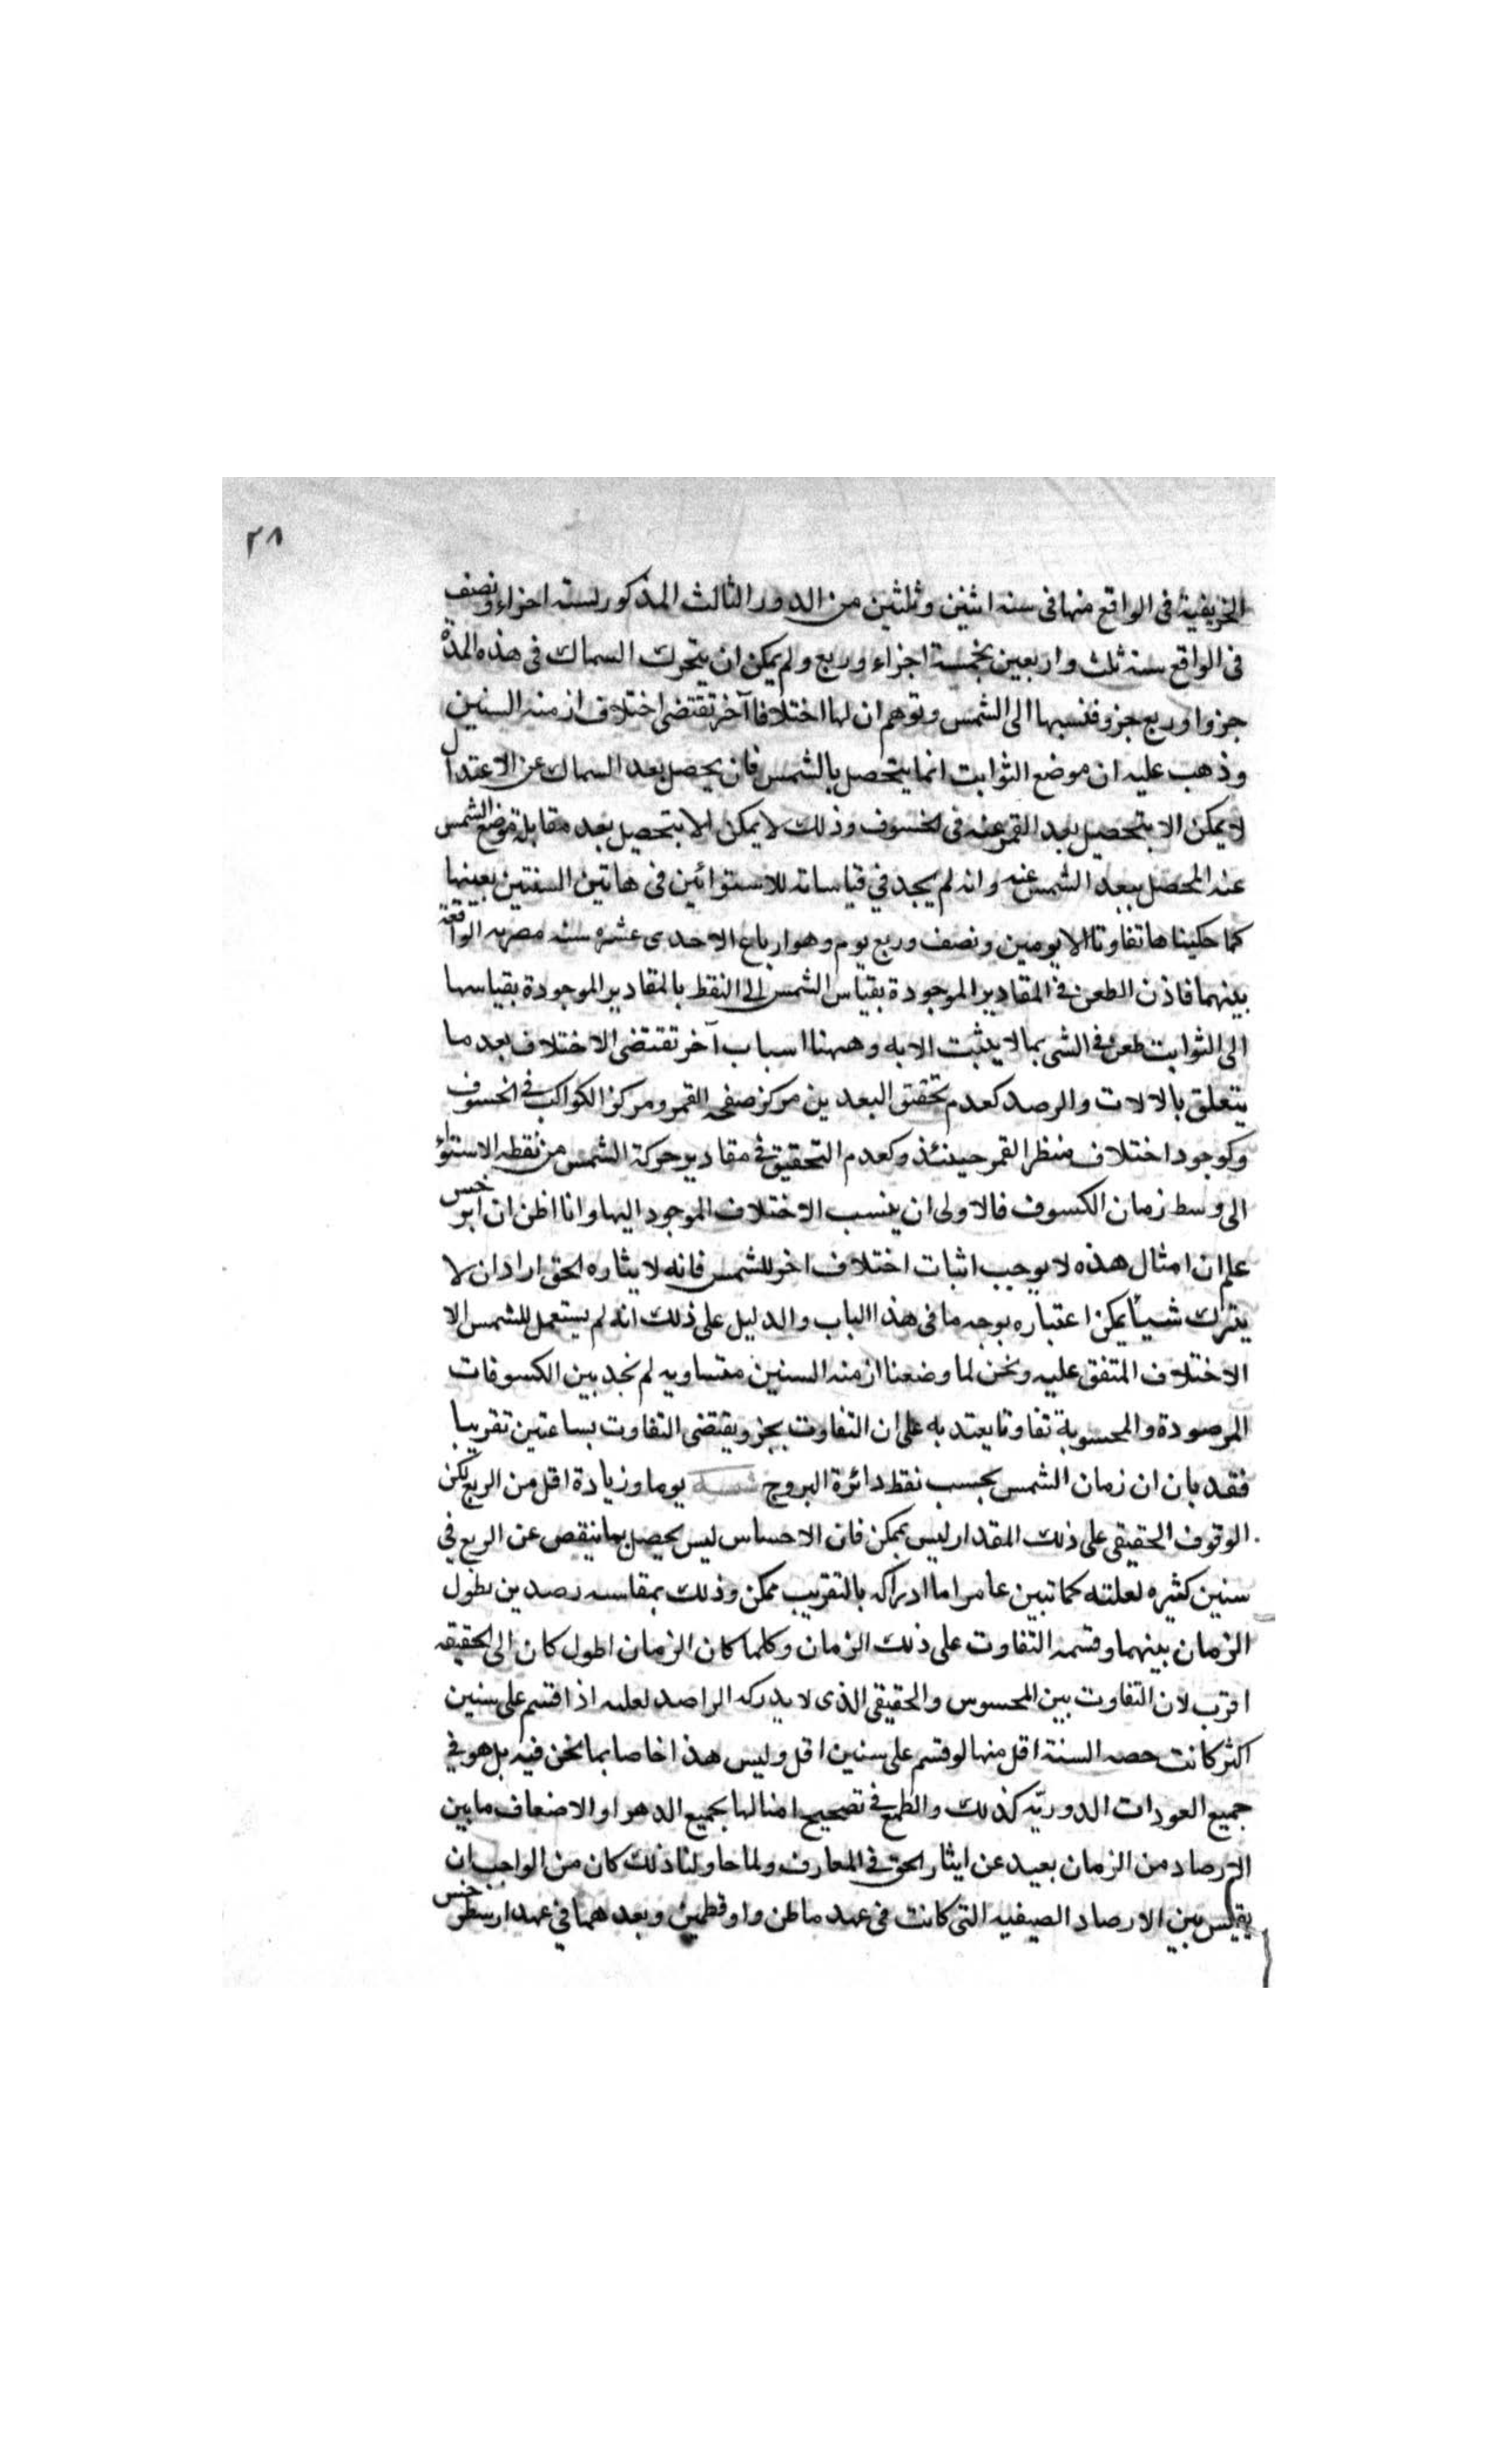 ٢٨
الخريفية فى الواقع منها فى سنه اثنين وثلثين من الدور الثالث المذكور لسته اجزاء ونصف
فى الواقع سنه ثلث واربعين بخمسة اجزاء وربع ولم يمكن ان يتحرك السماك فى هذه المدة
جزوا وربع جزو فنسبها الى الشمس وتوهم ان لها اختلافا آخر تقتضى اختلاف ازمنه السنين
وذهب عليه ان موضع الثوابت انما يتحصل بالشمس فان يحصل بعد السماك عن الاعتدال
لا يمكن الا بتحصيل بعد القمر عنه فى الخسوف وذلك لا يمكن الا بتحصيل بعد مقابلة موضع الشمس
عند المحصل ببعد الشمس عنه وانه لم يجد في قياساته للاستوائين فى هاتين السنتين بعينها
كما حكيناها تفاوتا الا يومين ونصف وربع يوم وهو ارباع الاحدى عشره سنه مصريه الواقعة
بينهما فاذن الطعن فى المقادير الموجودة بقياس الشمس الى النقط بالمقادير الموجودة بقياسها
الى الثوابت طعن فى الشى بما لا يثبت الا به وههنا اسباب آخر تقتضى الاختلاف بعد ما
يتعلق بالالات والرصد كعدم تحقق البعد بين مركز صفحه القمر ومركز الكواكب فى الخسوف
وكوجود اختلاف منظر القمر حينئذ وكعدم التحقيق فى مقادير حركة الشمس من نقطه الاستواء
الى وسط زمان الكسوف فالاولى ان ينسب الاختلاف الموجود اليها وانا اظن ان ابرخس
علم ان امثال هذه لا يوجب اثبات اختلاف اخر للشمس فانه لايثاره الحق اراد ان لا
يترك شيئا يمكن اعتباره بوجه ما فى هذا الباب والدليل على ذلك انه لم يستعمل للشمس الا
الاختلاف المتفق عليه ونحن لما وضعنا ازمنه السنين متساويه لم نجد بين الكسوفات
المرصودة والمحسوبة تفاوتا يعتد به على ان التفاوت بجزو يقتضى التفاوت بساعتين تقريبا
فقد بان ان زمان الشمس بحسب نقط دائرة البروج يوما وزيادة اقل من الربع لكن
الوقوف الحقيقى على ذلك المقدار ليس بممكن فان الاحساس ليس يحصل بما ينقص عن الربع فى
سنين كثيره لعلته كما تبين عامر اما ادراكه بالتقريب ممكن وذلك بمقاسه رصدين بطول
الزمان بينهما وقسمه التفاوت على ذلك الزمان وكلما كان الزمان اطول كان الى الحقيقه
اقرب لان التفاوت بين المحسوس والحقيقى الذى لا يدركه الراصد لعله اذا قسم على سنين
اكثر كانت حصه السنة اقل منها لو قسم على سنين اقل وليس هذا خاصا بما نحن فيه بل هو فى
جميع العودات الدوريّه كذلك والطمع فى تصحيح امثالها بجميع الدهر او الاضعاف ما بين
الارصاد من الزمان بعيد عن ايثار الحق فى المعارف ولما حاولنا ذلك كان من الواجب ان
يقاس بين الارصاد الصيفيه التى كانت فى عهد ماطن واوقطمين وبعد هما في عهد ارسطرخس